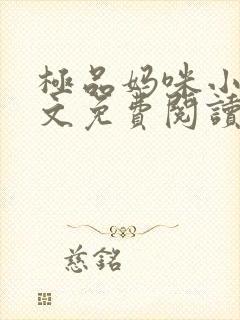 極品妈咪小
文免費閱讀
慈銘